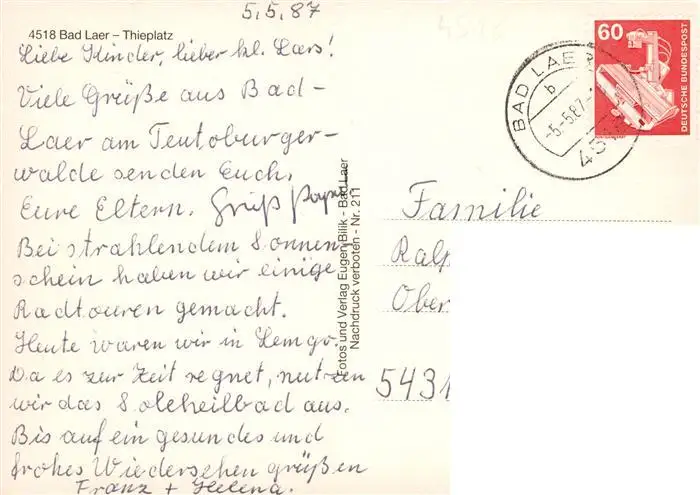 5.5.87
4518 Bad Laer – Thieplatz
Liebe Kinder, lieber kl. Lars!
Viele Grüße aus Bad-
Laer am Teutoburger-
walde senden Euch,
Eure Eltern. Gruß
Bei strahlendem Sonnen
schein haben wir einige
Radtouren gemacht.
Heute waren wir in Lemgo.
Da es zur Zeit regnet, nutzen
wir das Soleheilbad aus.
Bis auf ein gesundes und
frohes Wiedersehen grüßen
Franz + Helena.
Fotos und Verlag Eugen Bilik - Bad Laer
Nachdruck verboten - Nr. 211
60
DEUTSCHE BUNDESPOST
BAD LAER
b
-5.-5.87-
4518
Familie
Ralp
Ober
5431